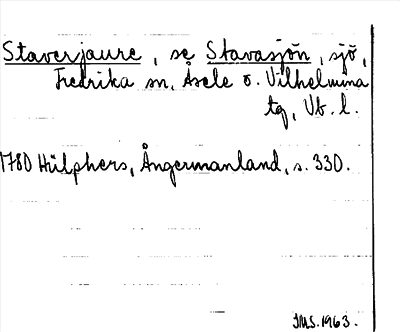 Staverjaure, se Stavasjön, sjö,
Fredrika sn, Åsele o. Vilhelmina
tg, Vb. l.
1780 Hülphers, Ångermanland, s. 330.
IMS. 1963.